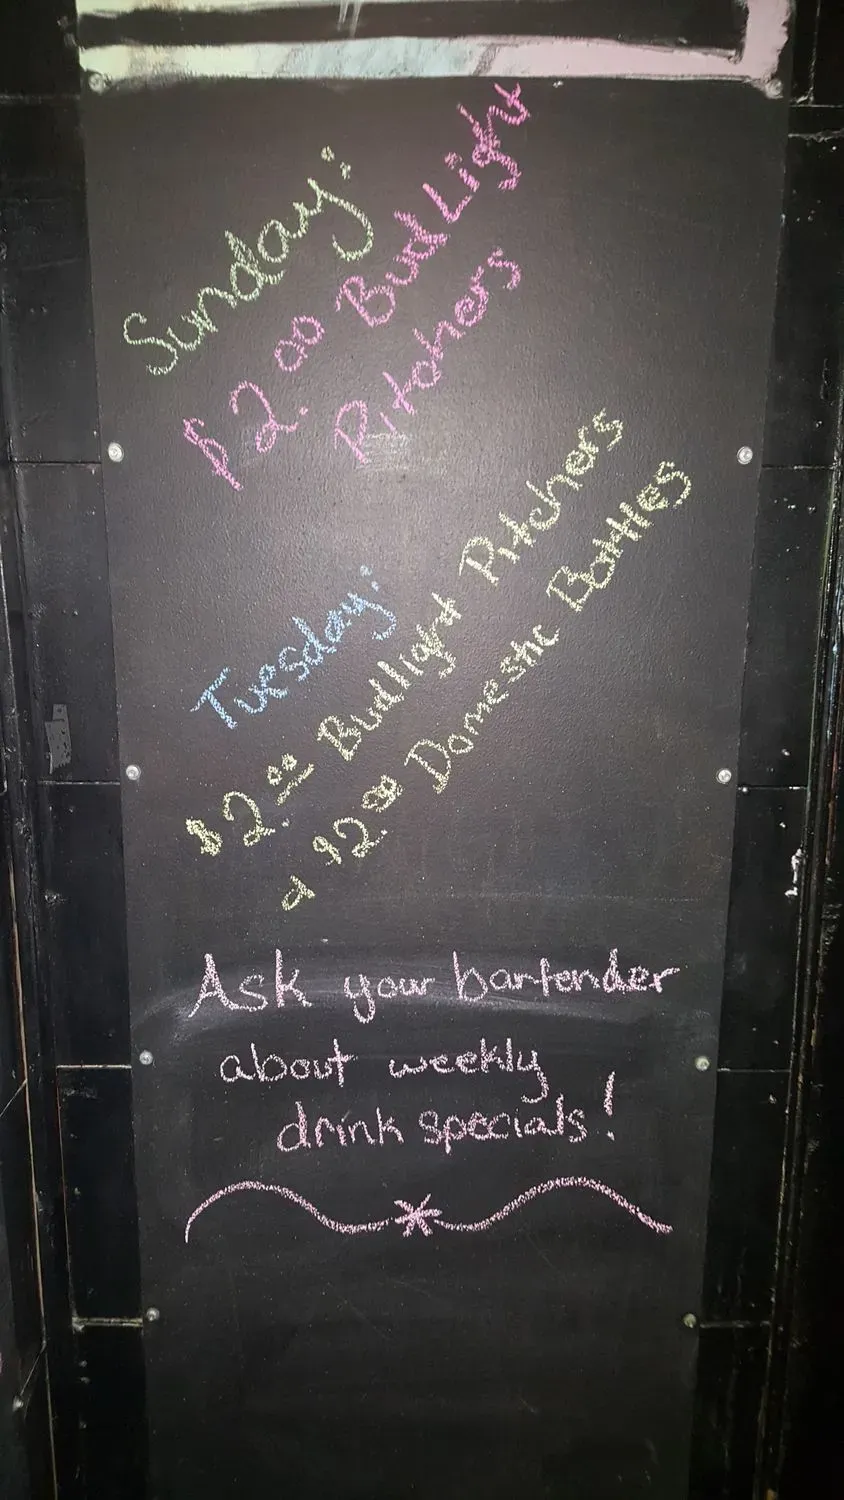 Sunday:
$2.00 Bud Light
Pitchers
Tuesday:
$2.00 Budlight Pitchers
$2.00 Domestic Bottles
Ask your bartender
about weekly
drink specials!